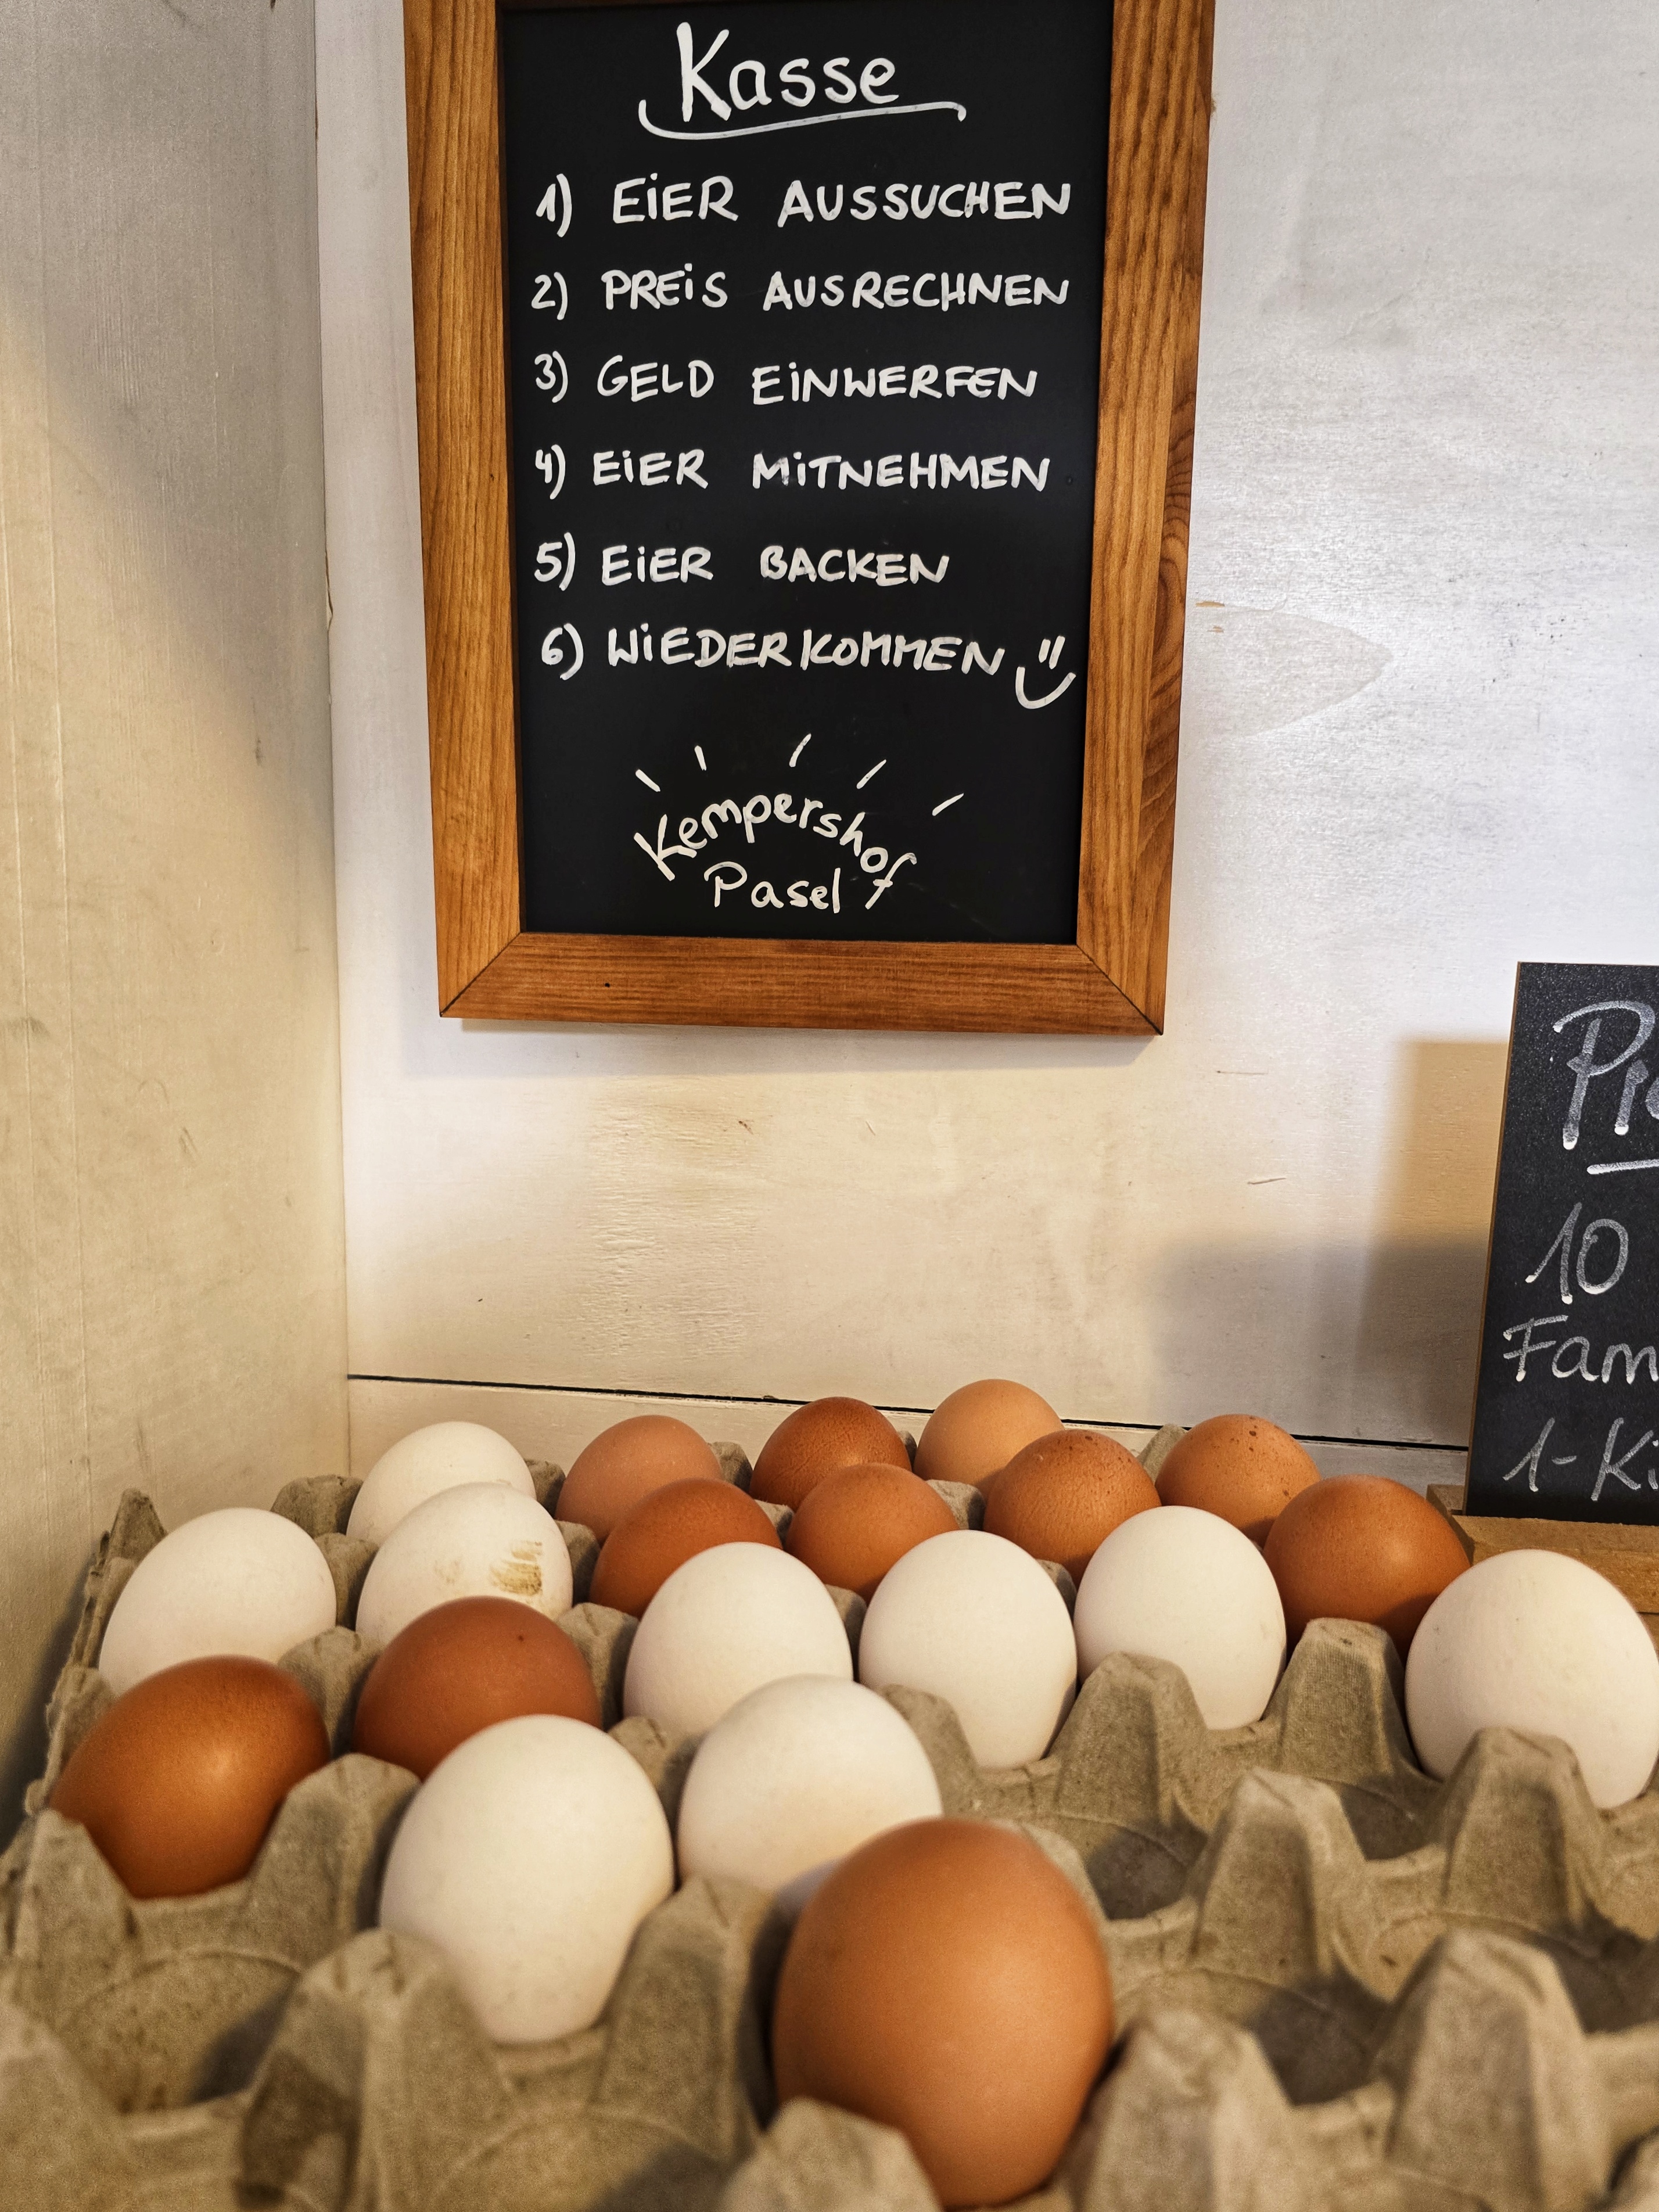 Kasse
1) EiER AUSSUCHEN
2) PREiS AUSRECHNEN
3) GELD EiNWERFEN
4) EiER MiTNEHMEN
5) EiER BACKEN
6) WiEDERKOMMEN
Kempershof
Pasel
10